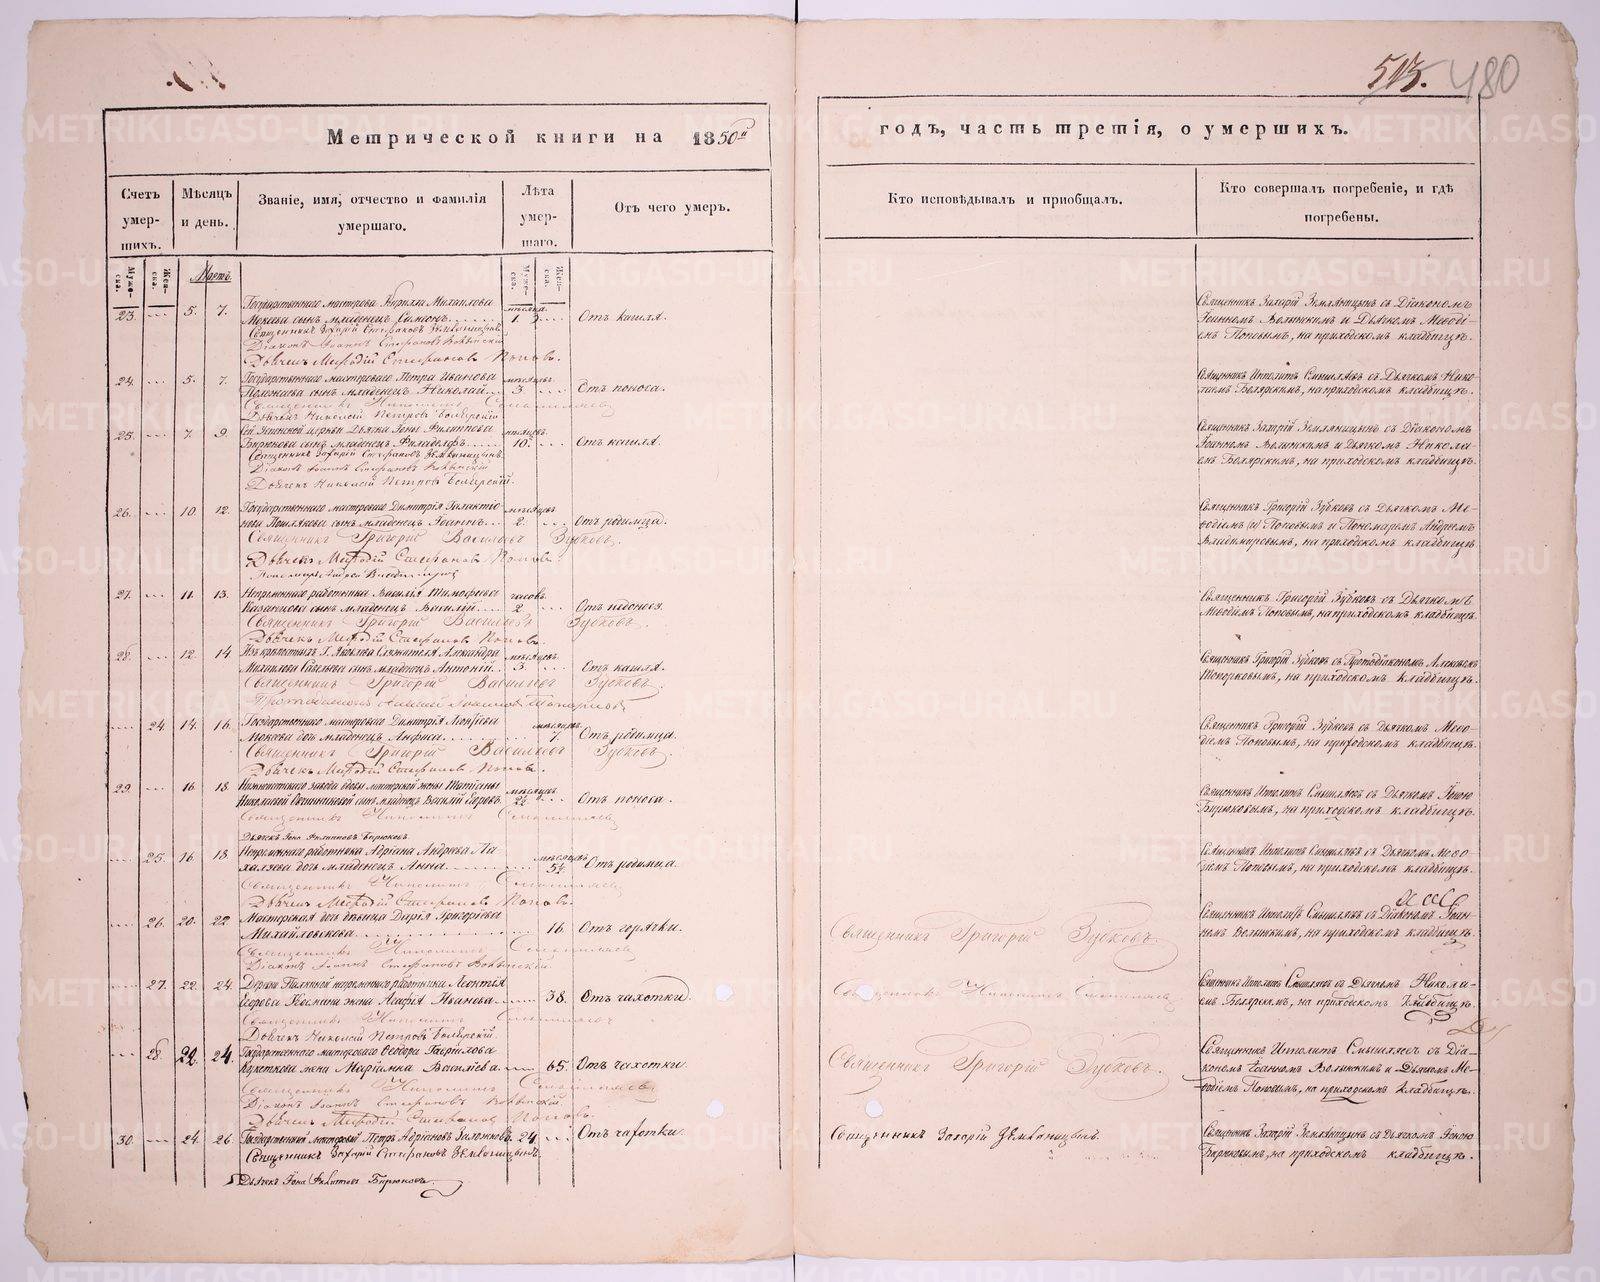 513. 480
Метрической книги на 1850й
годъ, часть третія, о умершихъ.
Счетъ умер-шихъ.
Мѣсяцъ и день.
Званіе, имя, отчество и фамилія умершаго.
Лѣта умер-шаго.
Отъ чего умеръ.
Кто исповѣдывалъ и пріобщалъ.
Кто совершалъ погребеніе, и гдѣ погребены.
Муже-ска.
Жен-ска.
Мартъ.
Муже-ска.
Жен-ска.
Государственнаго мастерова Кирилла Михаилова
23. 5. 7. сынъ младенецъ Симеонъ Отъ кашля.
Священникъ Захарій Стефановъ Земляницынъ
Діаконъ Іоаннъ Стефановъ Волынскій
Дьячекъ Меѳодій Стефановъ Поповъ.
Священникъ Захарій Земляницынъ съ Діакономъ
Іоанномъ Волынскимъ и Дьячкомъ Меѳоді-
емъ Поповымъ, на приходскомъ кладбищѣ.
Государственнаго мастероваго Петра Иванова мѣсяцевъ
24. 5. 7. сынъ младенецъ Николай 3. Отъ поноса.
Священникъ Ипполитъ Смышляевъ
Дьячекъ Николай Петровъ Боярскій
Священникъ Иполитъ Смышляевъ съ Дьячкомъ Нико-
лаемъ Боярскимъ, на приходскомъ кладбищѣ.
Дьячка Іоны Филиппова мѣсяцевъ
25. 7. 9. Бирюкова сынъ младенецъ Филаделфъ 10. Отъ кашля.
Священникъ Захарій Стефановъ Земляницынъ
Діаконъ Іоаннъ Стефановъ Волынскій
Дьячекъ Николай Петровъ Боярскій.
Священникъ Захарій Земляницынъ съ Діакономъ
Іоанномъ Волынскимъ и Дьячкомъ Никола-
емъ Боярскимъ, на приходскомъ кладбищѣ.
Государственнаго мастероваго Димитрія Галактіо- мѣсяцевъ
26. 10. 12. нова сынъ младенецъ Іоаннъ 2. Отъ родимца.
Священникъ Григорій Васильевъ Зубковъ.
Дьячекъ Меѳодій Стефановъ Поповъ
Пономарь Андрей Владимировъ
Священникъ Григорій Зубковъ съ Дьячкомъ Ме-
ѳодіемъ Поповымъ и Пономаремъ Андреемъ
Владимировымъ, на приходскомъ кладбищѣ.
Непремѣннаго работника Василія Тимоѳеева часовъ
27. 11. 13. Казанцова сынъ младенецъ Василій 2. Отъ недоноса.
Священникъ Григорій Васильевъ Зубковъ.
Дьячекъ Меѳодій Стефановъ Поповъ.
Священникъ Григорій Зубковъ съ Дьячкомъ
Меѳодіемъ Поповымъ, на приходскомъ кладбищѣ.
Изъ крѣпостныхъ Г. Яковлева Служителя Александра мѣсяцевъ
28. 12. 14. Михаилова Савельева сынъ младенецъ Антоній 3. Отъ кашля.
Священникъ Григорій Васильевъ Зубковъ.
Протодіаконъ Алексій Іоанновъ Топорковъ
Священникъ Григорій Зубковъ съ Протодіакономъ Алексѣемъ
Топорковымъ, на приходскомъ кладбищѣ.
Государственнаго мастероваго Димитрія мѣсяцевъ
24. 14. 16. Мокеева дочь младенецъ Анфиса 7. Отъ родимца.
Священникъ Григорій Васильевъ Зубковъ.
Дьячекъ Меѳодій Стефановъ Поповъ.
Священникъ Григорій Зубковъ съ Дьячкомъ Меѳо-
діемъ Поповымъ, на приходскомъ кладбищѣ.
завода вдовы мастерской жены Татіаны мѣсяцевъ
29. 16. 18. Николаевой Овчинниковой сынъ младенецъ Василій Егоровъ Отъ поноса.
Священникъ Ипполитъ Смышляевъ
Дьячекъ Іона Филипповъ Бирюковъ.
Священникъ Иполитъ Смышляевъ съ Дьячкомъ Іоною
Бирюковымъ, на приходскомъ кладбищѣ.
Непремѣннаго работника Адріана Андреева Па- мѣсяцовъ
25. 16. 18. халуева дочь младенецъ Анна Отъ родимца.
Священникъ Ипполитъ Смышляевъ
Дьячекъ Меѳодій Стефановъ Поповъ.
Священникъ Иполитъ Смышляевъ съ Дьячкомъ Меѳо-
діемъ Поповымъ, на приходскомъ кладбищѣ.
Мастерская дочь дѣвица Дарія Григоріева
26. 20. 22. Михайловскова 16. Отъ горячки.
Священникъ Ипполитъ Смышляевъ
Діаконъ Іоаннъ Стефановъ Волынскій.
Священникъ Григорій Зубковъ.
Священникъ Иполитъ Смышляевъ съ Діакономъ Іоан-
номъ Волынскимъ, на приходскомъ кладбищѣ.
Деревни непремѣннаго работника Леонтія
27. 22. 24. Егорова жена Агафія Иванова 38. Отъ чахотки.
Священникъ Ипполитъ Смышляевъ
Дьячекъ Николай Петровъ Боярскій
Священникъ Ипполитъ Смышляевъ
Священникъ Иполитъ Смышляевъ съ Дьячкомъ Никола-
емъ Боярскимъ, на приходскомъ кладбищѣ.
Государственнаго мастероваго Ѳеодора Гавріилова
28. 22. 24. жена Маріанна Василіева 65. Отъ чахотки.
Священникъ Ипполитъ Смышляевъ
Діаконъ Іоаннъ Стефановъ Волынскій
Дьячекъ Меѳодій Стефановъ Поповъ.
Священникъ Григорій Зубковъ.
Священникъ Иполитъ Смышляевъ съ Діа-
кономъ Іоанномъ Волынскимъ и Дьячкомъ Ме-
ѳодіемъ Поповымъ, на приходскомъ кладбищѣ.
30. 24. 26. Государственный мастеровый Петръ Адріановъ 24. Отъ чахотки.
Священникъ Захарій Стефановъ Земляницынъ
Дьячекъ Іона Филиповъ Бирюковъ.
Священникъ Захарій Земляницынъ.
Священникъ Захарій Земляницынъ съ Дьячкомъ Іоною
Бирюковымъ, на приходскомъ кладбищѣ.
METRIKI.GASO-URAL.RU